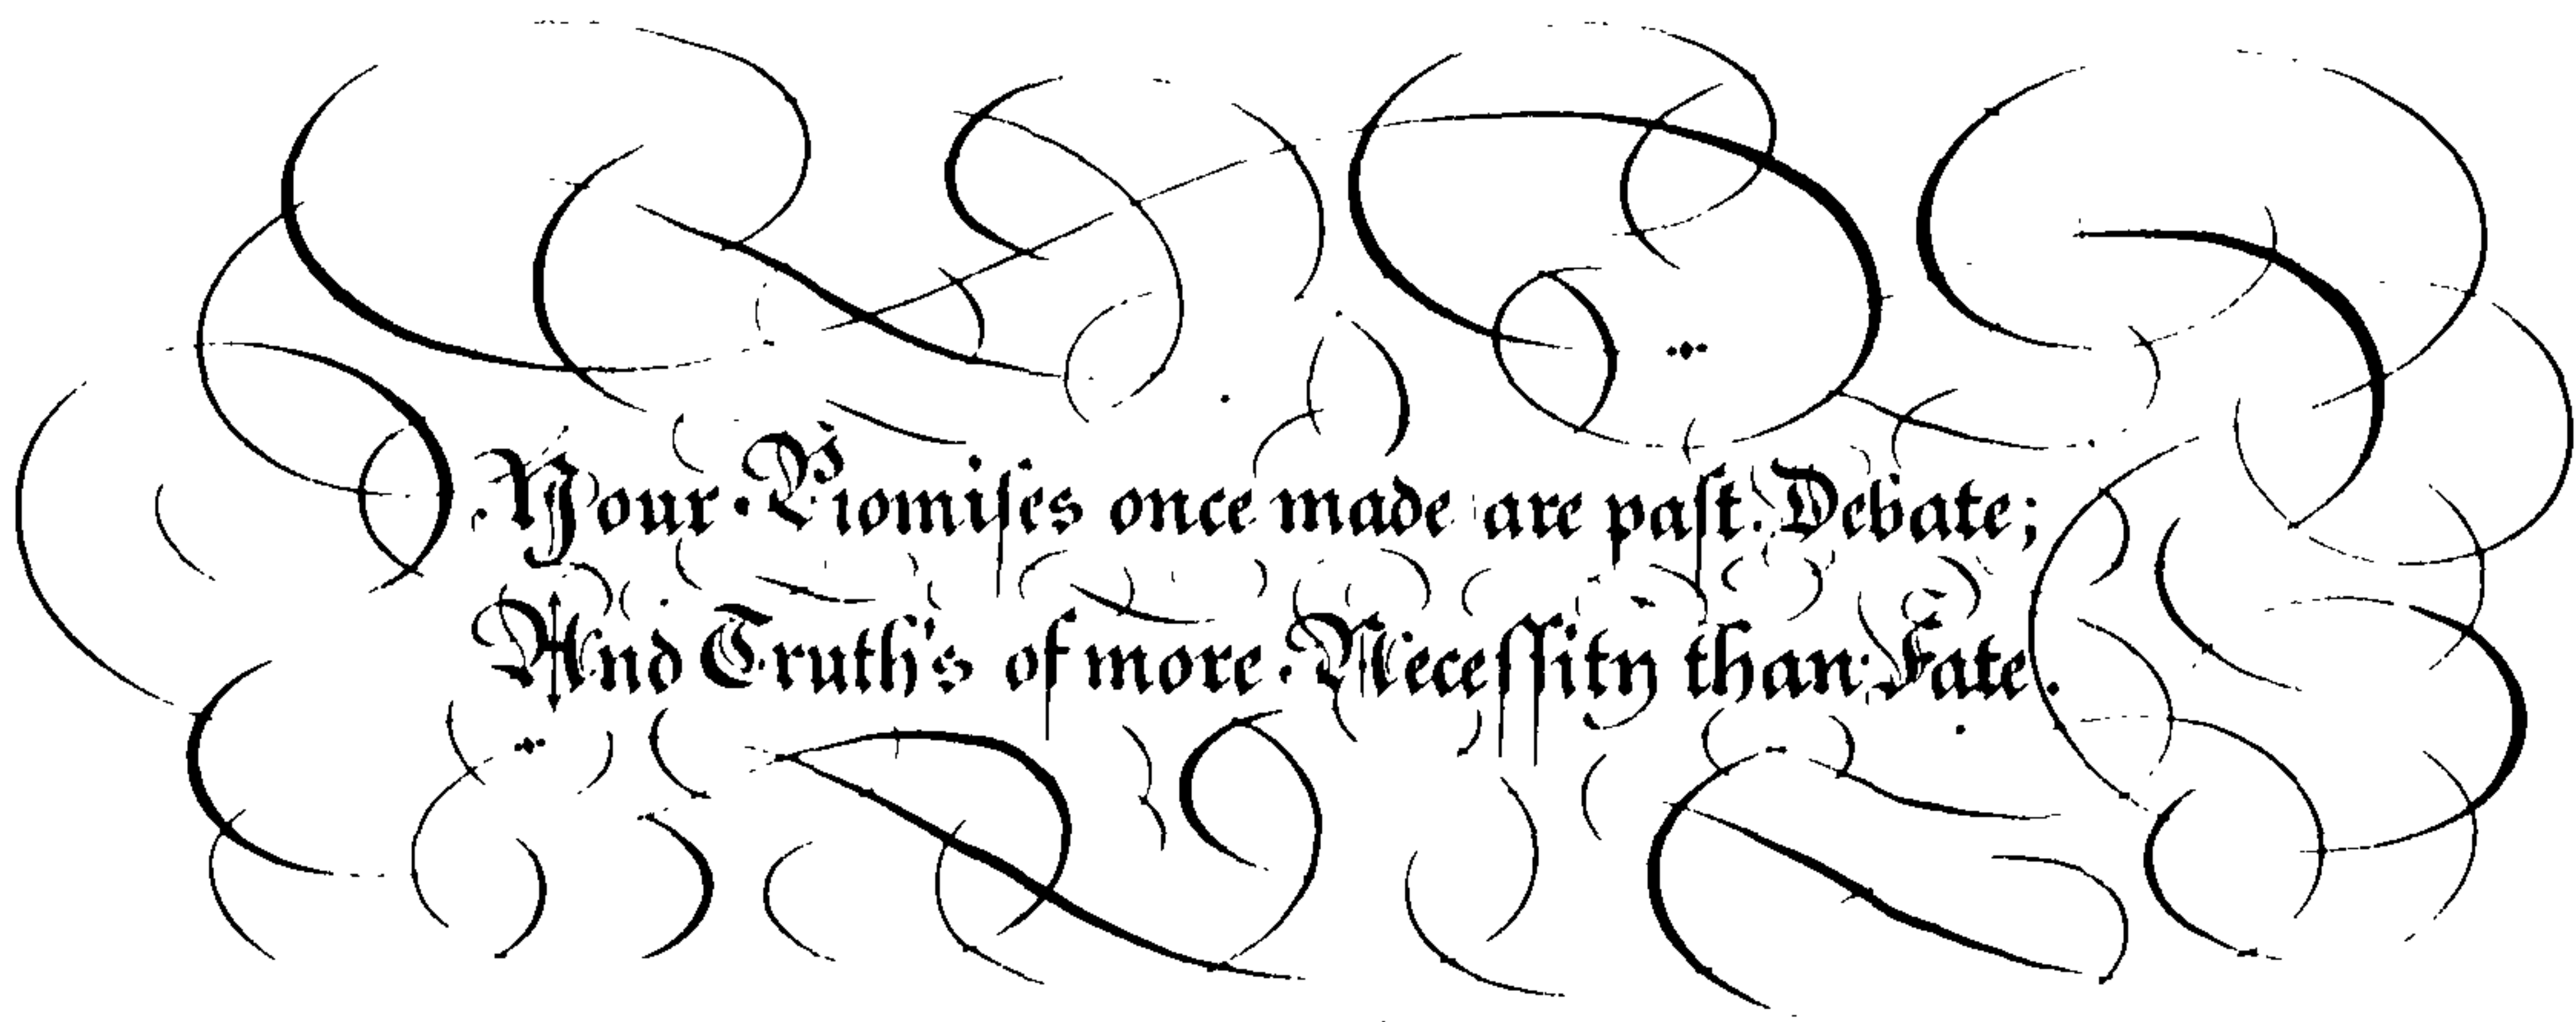 Your Promiſes once made are paſt Debate;
And Truth's of more Neceſſity than Fate.